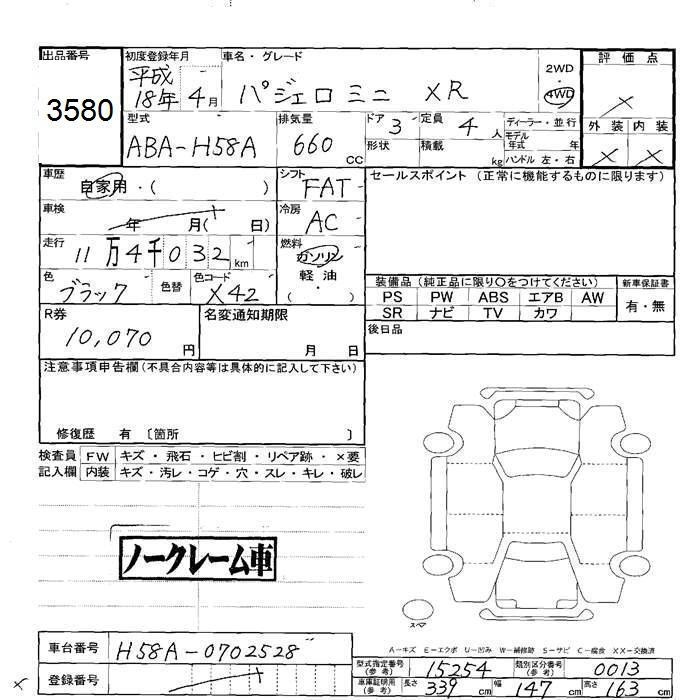 出品番号
3580
初度登録年月
平成
18年 4月
車名・グレード
パジェロミニ XR
2WD
・
4WD
評価点
×
外装 内装
× ×
型式
ABA-H58A
排気量
660 CC
ドア 3
形状
定員 4 人
積載 kg
ディーラー・並行
モデル
年式 年
ハンドル 左・右
車歴
自家用・( )
シフト
FAT
セールスポイント (正常に機能するものに限ります)
車検
年 月( 日)
冷房
AC
走行
11万4千032km
燃料
ガソリン
軽油
・
( )
色
ブラック
色替
色コード
X42
装備品(純正品に限り○をつけてください)
PS PW ABS エアB AW
SR ナビ TV カワ
新車保証書
有・無
R券
10,070 円
名変通知期限
月 日
後日品
注意事項申告欄(不具合内容等は具体的に記入して下さい)
修復歴 有 〔箇所 〕
検査員 FW キズ・飛石・ヒビ割・リペア跡・×要
記入欄 内装 キズ・汚レ・コゲ・穴・スレ・キレ・破レ
ノークレーム車
スペア
A-キズ E-エクボ U-凹み W-補修跡 S-サビ C-腐食 XX-交換済
車台番号
H58A-0702528
登録番号
×
型式指定番号
(参考)
15254
類別区分番号
(参考)
0013
車庫証明用
(参考)
長さ 339 cm 幅 147 cm 高さ 163 cm